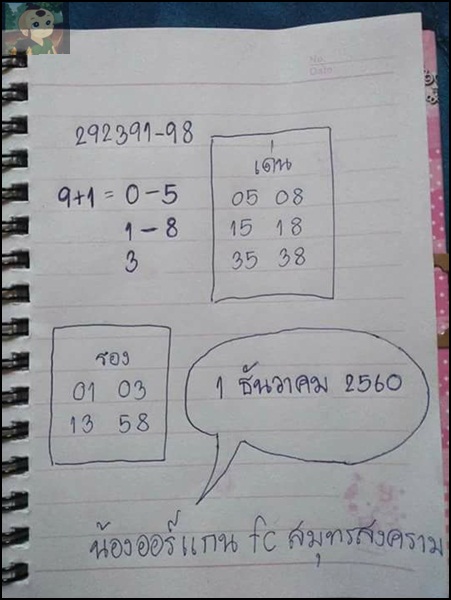 No.
Date
292391-98
9+1 = 0-5
1-8
3
เด่น
05 08
15 18
35 38
รอง
01 03
13 58
1 ธันวาคม 2560
น้องออร์แกน fc สมุทรสงคราม